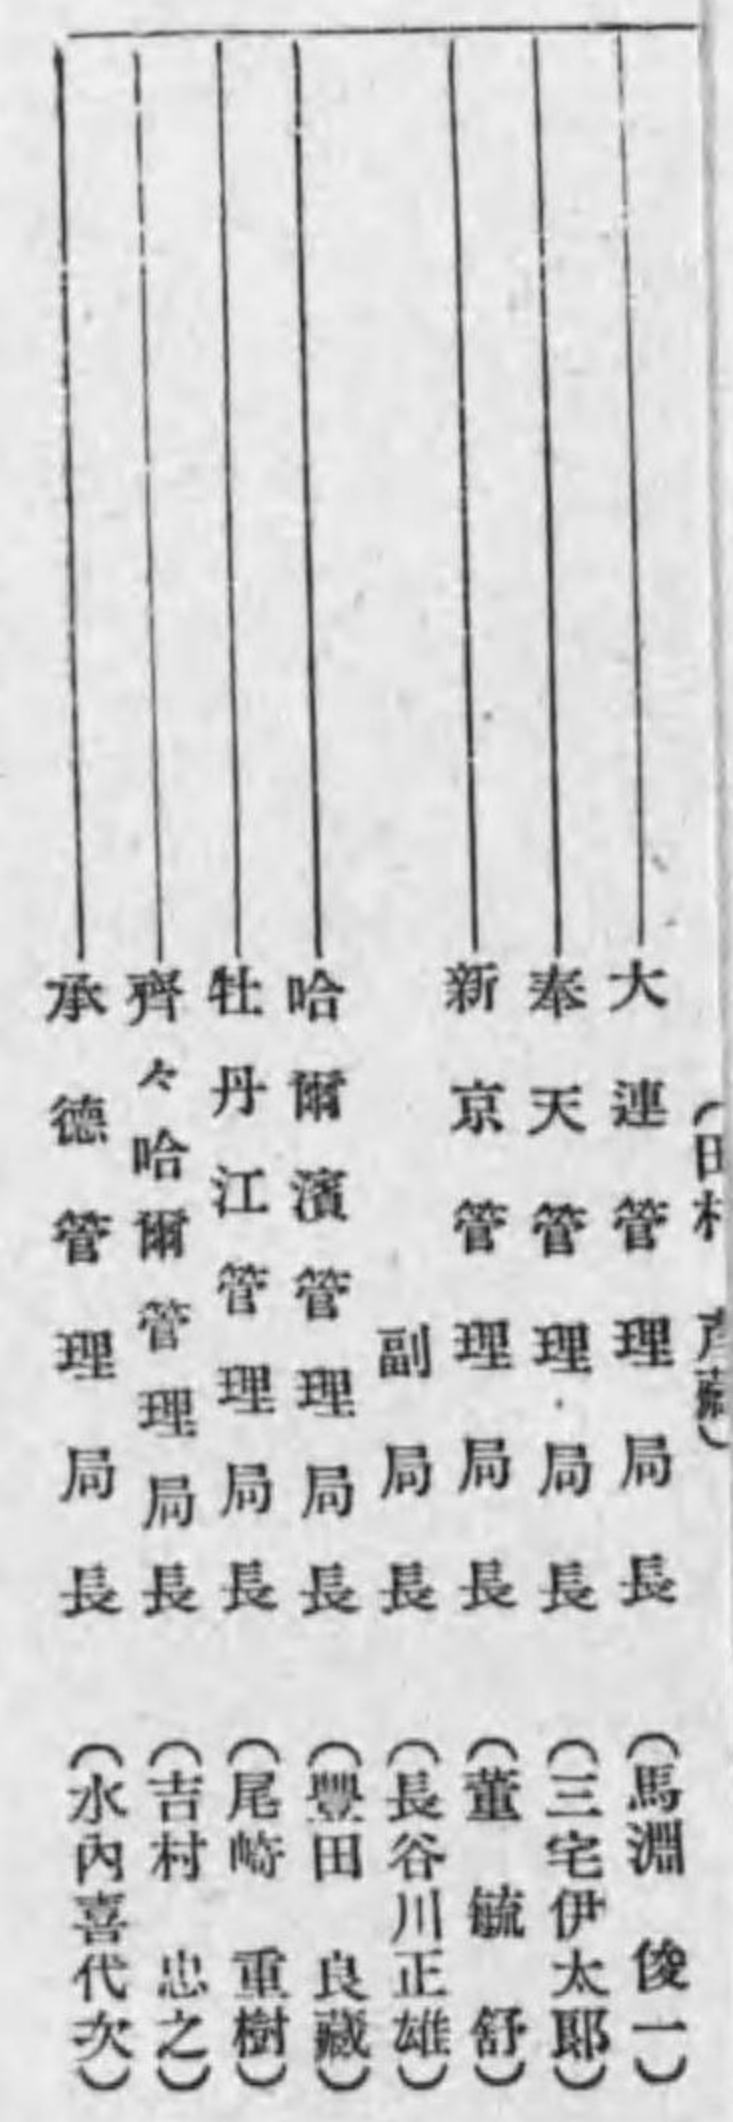 (田村
大連管理局長 (馬淵 俊一)
奉天管理局長 (三宅伊太郎)
新京管理局長 (董 毓 舒)
副局長 (長谷川正雄)
哈爾濱管理局長 (豐田 良藏)
牡丹江管理局長 (尾崎 重樹)
齊々哈爾管理局長 (吉村 忠之)
承德管理局長 (水內喜代次)